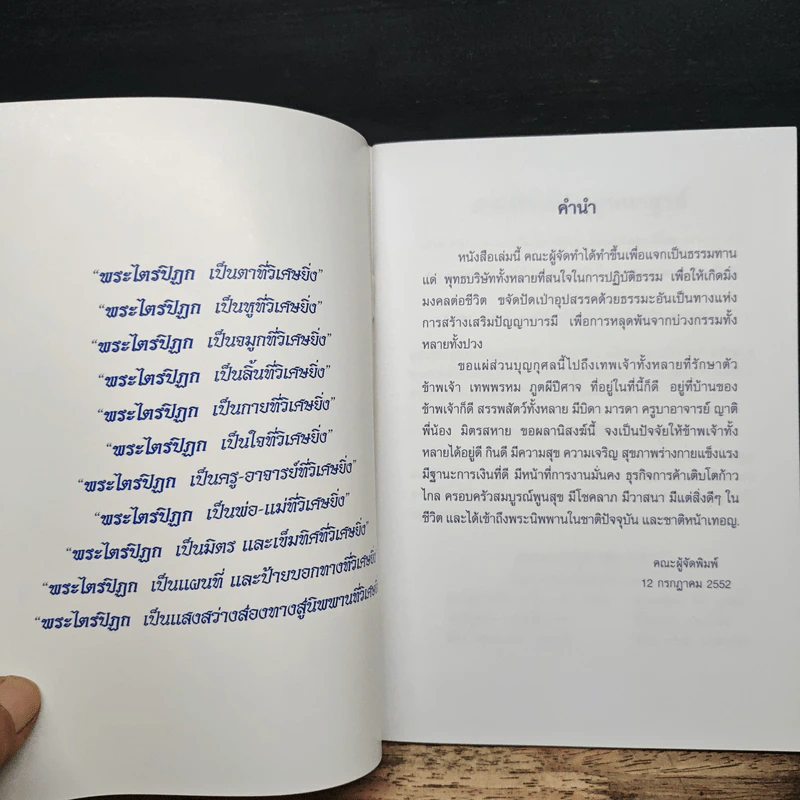 “พระไตรปิฎก เป็นตาที่วิเศษยิ่ง”
“พระไตรปิฎก เป็นหูที่วิเศษยิ่ง”
“พระไตรปิฎก เป็นจมูกที่วิเศษยิ่ง”
“พระไตรปิฎก เป็นลิ้นที่วิเศษยิ่ง”
“พระไตรปิฎก เป็นกายที่วิเศษยิ่ง”
“พระไตรปิฎก เป็นใจที่วิเศษยิ่ง”
“พระไตรปิฎก เป็นครู-อาจารย์ที่วิเศษยิ่ง”
“พระไตรปิฎก เป็นพ่อ-แม่ที่วิเศษยิ่ง”
“พระไตรปิฎก เป็นมิตร และเข็มทิศที่วิเศษยิ่ง”
“พระไตรปิฎก เป็นแผนที่ และป้ายบอกทางที่วิเศษยิ่ง
“พระไตรปิฎก เป็นแสงสว่างส่องทางสู่นิพพานที่วิเศษ
คำนำ
หนังสือเล่มนี้ คณะผู้จัดทำได้ทำขึ้นเพื่อแจกเป็นธรรมทาน
แด่ พุทธบริษัททั้งหลายที่สนใจในการปฏิบัติธรรม เพื่อให้เกิดมิ่ง
มงคลต่อชีวิต ขจัดปัดเป่าอุปสรรคด้วยธรรมะอันเป็นทางแห่ง
การสร้างเสริมปัญญาบารมี เพื่อการหลุดพ้นจากบ่วงกรรมทั้ง
หลายทั้งปวง
ขอแผ่ส่วนบุญกุศลนี้ไปถึงเทพเจ้าทั้งหลายที่รักษาตัว
ข้าพเจ้า เทพพรหม ภูตผีปีศาจ ที่อยู่ในที่นี้ก็ดี อยู่ที่บ้านของ
ข้าพเจ้าก็ดี สรรพสัตว์ทั้งหลาย มีบิดา มารดา ครูบาอาจารย์ ญาติ
พี่น้อง มิตรสหาย ขอผลานิสงฆ์นี้ จงเป็นปัจจัยให้ข้าพเจ้าทั้ง
หลายได้อยู่ดี กินดี มีความสุข ความเจริญ สุขภาพร่างกายแข็งแรง
มีฐานะการเงินที่ดี มีหน้าที่การงานมั่นคง ธุรกิจการค้าเติบโตก้าว
ไกล ครอบครัวสมบูรณ์พูนสุข มีโชคลาภ มีวาสนา มีแต่สิ่งดีๆ ใน
ชีวิต และได้เข้าถึงพระนิพพานในชาติปัจจุบัน และชาติหน้าเทอญ.
คณะผู้จัดพิมพ์
12 กรกฎาคม 2552